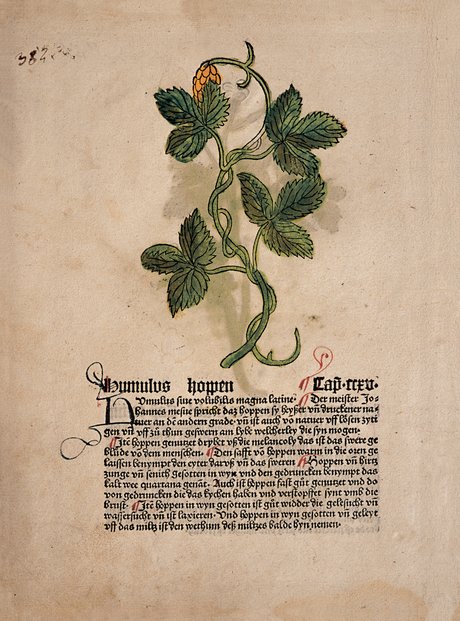 Humulus hoppen Cap̄. ccxv.
Umulus siue volubilis magna latine. Der meister Jo⸗
hannes mesue spricht daz hoppen sy heyßer vn̄ druckener na⸗
tuer an dē andern grade. vn̄ ist auch vō natuer vff lösen zytt
gen vn̄ vff zū thun geswern am lybe welcherley die syn mogen.
Jtē hoppen genutzet drybet vß die melancoly das ist das swere ge
blude vō dem menschē. Den safft vō hoppen warm in die oren ge
laissen benympt den eyter dar vß vn̄ das sweren. Hoppen vn̄ hirtz
zunge vn̄ fenich gesotten in wyn vnd den gedruncken benympt das
kalt wee quartana genāt. Auch ist hoppen fast gūt genutzet vnd do
von gedruncken die das kychen haben vnd verstopfft synt vmb die
brust. Jtē hoppen in wyn gesotten ist gūt widder die gelesucht vn̄
wassersucht vn̄ ist laxieren. Vnd hoppen in wyn gesotten vn̄ geleyt
vff das miltz ist den wethum deß miltzes balde hyn nemen.